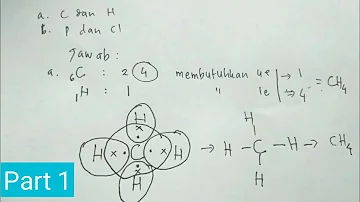 a. C dan H
b. P dan Cl
Jawab:
a. ₆C : 2 4 membutuhkan 4e → 1
₁H : 1 " 1e → 4 = CH₄
H
H × • C • × H → H – C – H → CH₄
H
H
H
Part 1